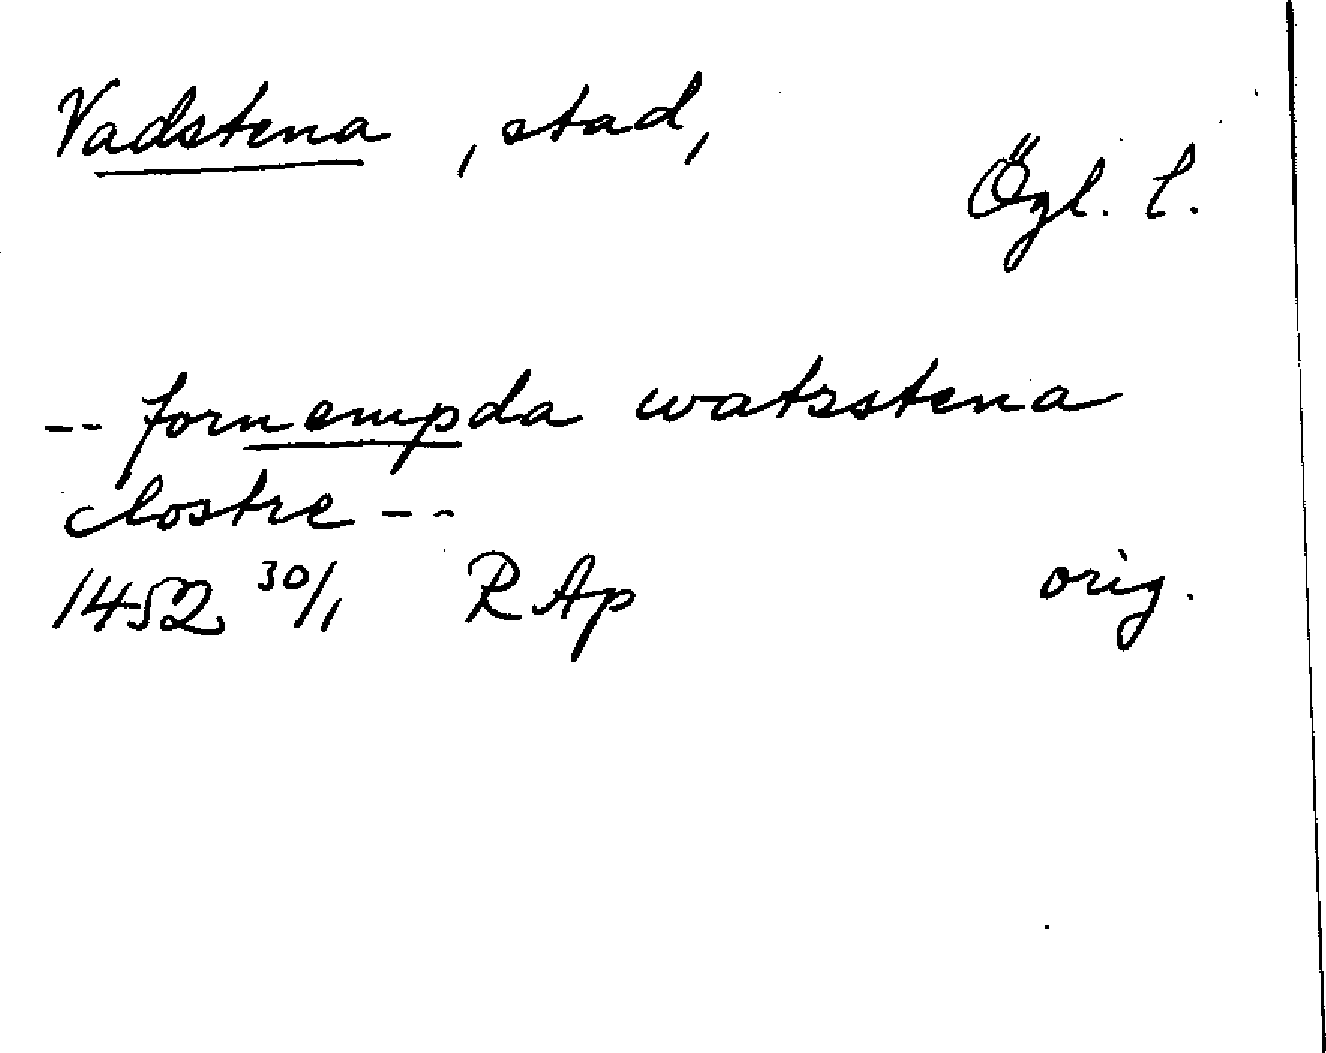 Vadstena, stad,
Ögl. l.
-- fornempda watzstena
clostre --
1452 30/1 RAp orig.